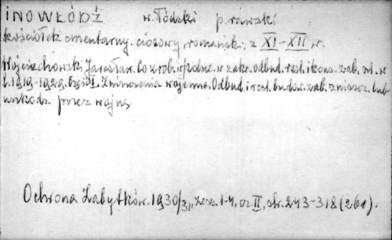 INOWŁÓDŹ w. Łódzki p. rawski
kościółek cmentarny, ciosowy romański, z XI–XII w.
Wojciechowski Jarosław. Co zrob. wPolsce w zakr. odbud. rest. i kons. zab. szt. w
l. 1919-1929. Część I. Zniszczenia wojenne. Odbud. i rest. budow. zab. zniszcz. lub
uszkodz. przez wojnę
Ochrona Zabytków. 1930/31, zesz. 1-4, cz II, str. 243-318 (261).